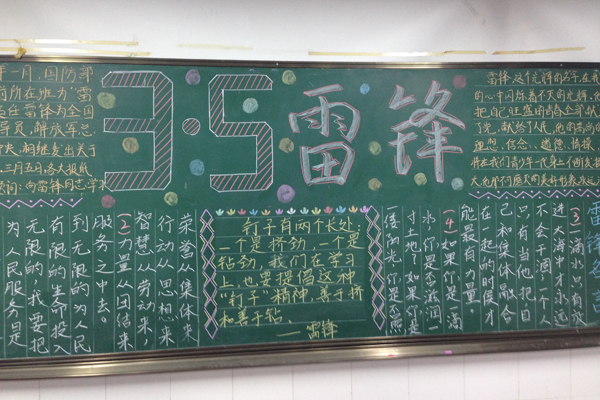 3·5雷锋
年一月,国防部
前所在班为"雷
雷锋为全国
导员,解放军总
三月五日,各大报纸
向雷锋同志学
雷锋这个光辉的名字,在我
的心中闪烁着不灭的光辉,
把自己旺盛的青春全部献
了党,献给了人民,他的高尚的
理想、信念、道德、情操
钉子有两个长处:
一个是挤劲,一个是
钻劲。我们在学习
上,也要提倡这种
"钉子"精神,善于挤
和善于钻。
——雷锋
(2)力量从团结来
智慧从劳动来,
行动从思想来
荣誉从集体来
为人民服务是
无限的,我要把
有限的生命投入
到无限的为人民
服务之中去。
(3)一滴水只有放
进大海中才永远
不会干涸,一个人
只有当他把自
己和集体融合
在一起的时候才
能最有力量。
(4)如果你是一滴
水,你是否滋润一
寸土地?如果你是
一缕阳光,你是否照